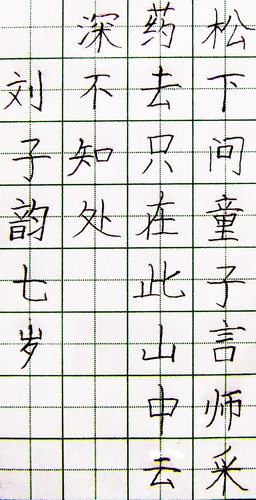 松下问童子言师采
药去只在此山中云
深不知处
刘子韵七岁